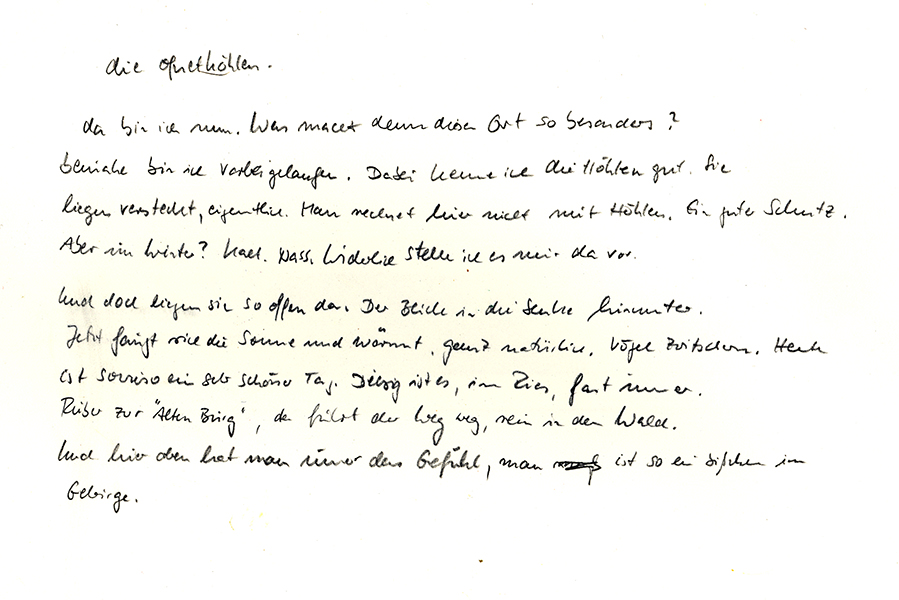 die Ofnethöhlen.
da bin ich nun. Was macht denn diesen Ort so besonders?
beinahe bin ich vorbeigelaufen. Dabei kenne ich die Höhlen gut. Sie
liegen versteckt, eigentlich. Man rechnet hier nicht mit Höhlen. Ein guter Schutz.
Aber im Winter? Kalt. Nass. Widerlich stelle ich es mir da vor.
Und doch liegen sie so offen da. Der Blick in die Senke hinunter.
Jetzt fängt sich die Sonne und wärmt, ganz natürlich. Vögel zwitschern. Heute
ist sowieso ein sehr schöner Tag. Diesig ist es, im Ries, fast immer.
Rüber zur "Alten Bürg", da führt der Weg weg, rein in den Wald.
Und hier oben hat man immer das Gefühl, man ist so ein bißchen im
Gebirge.